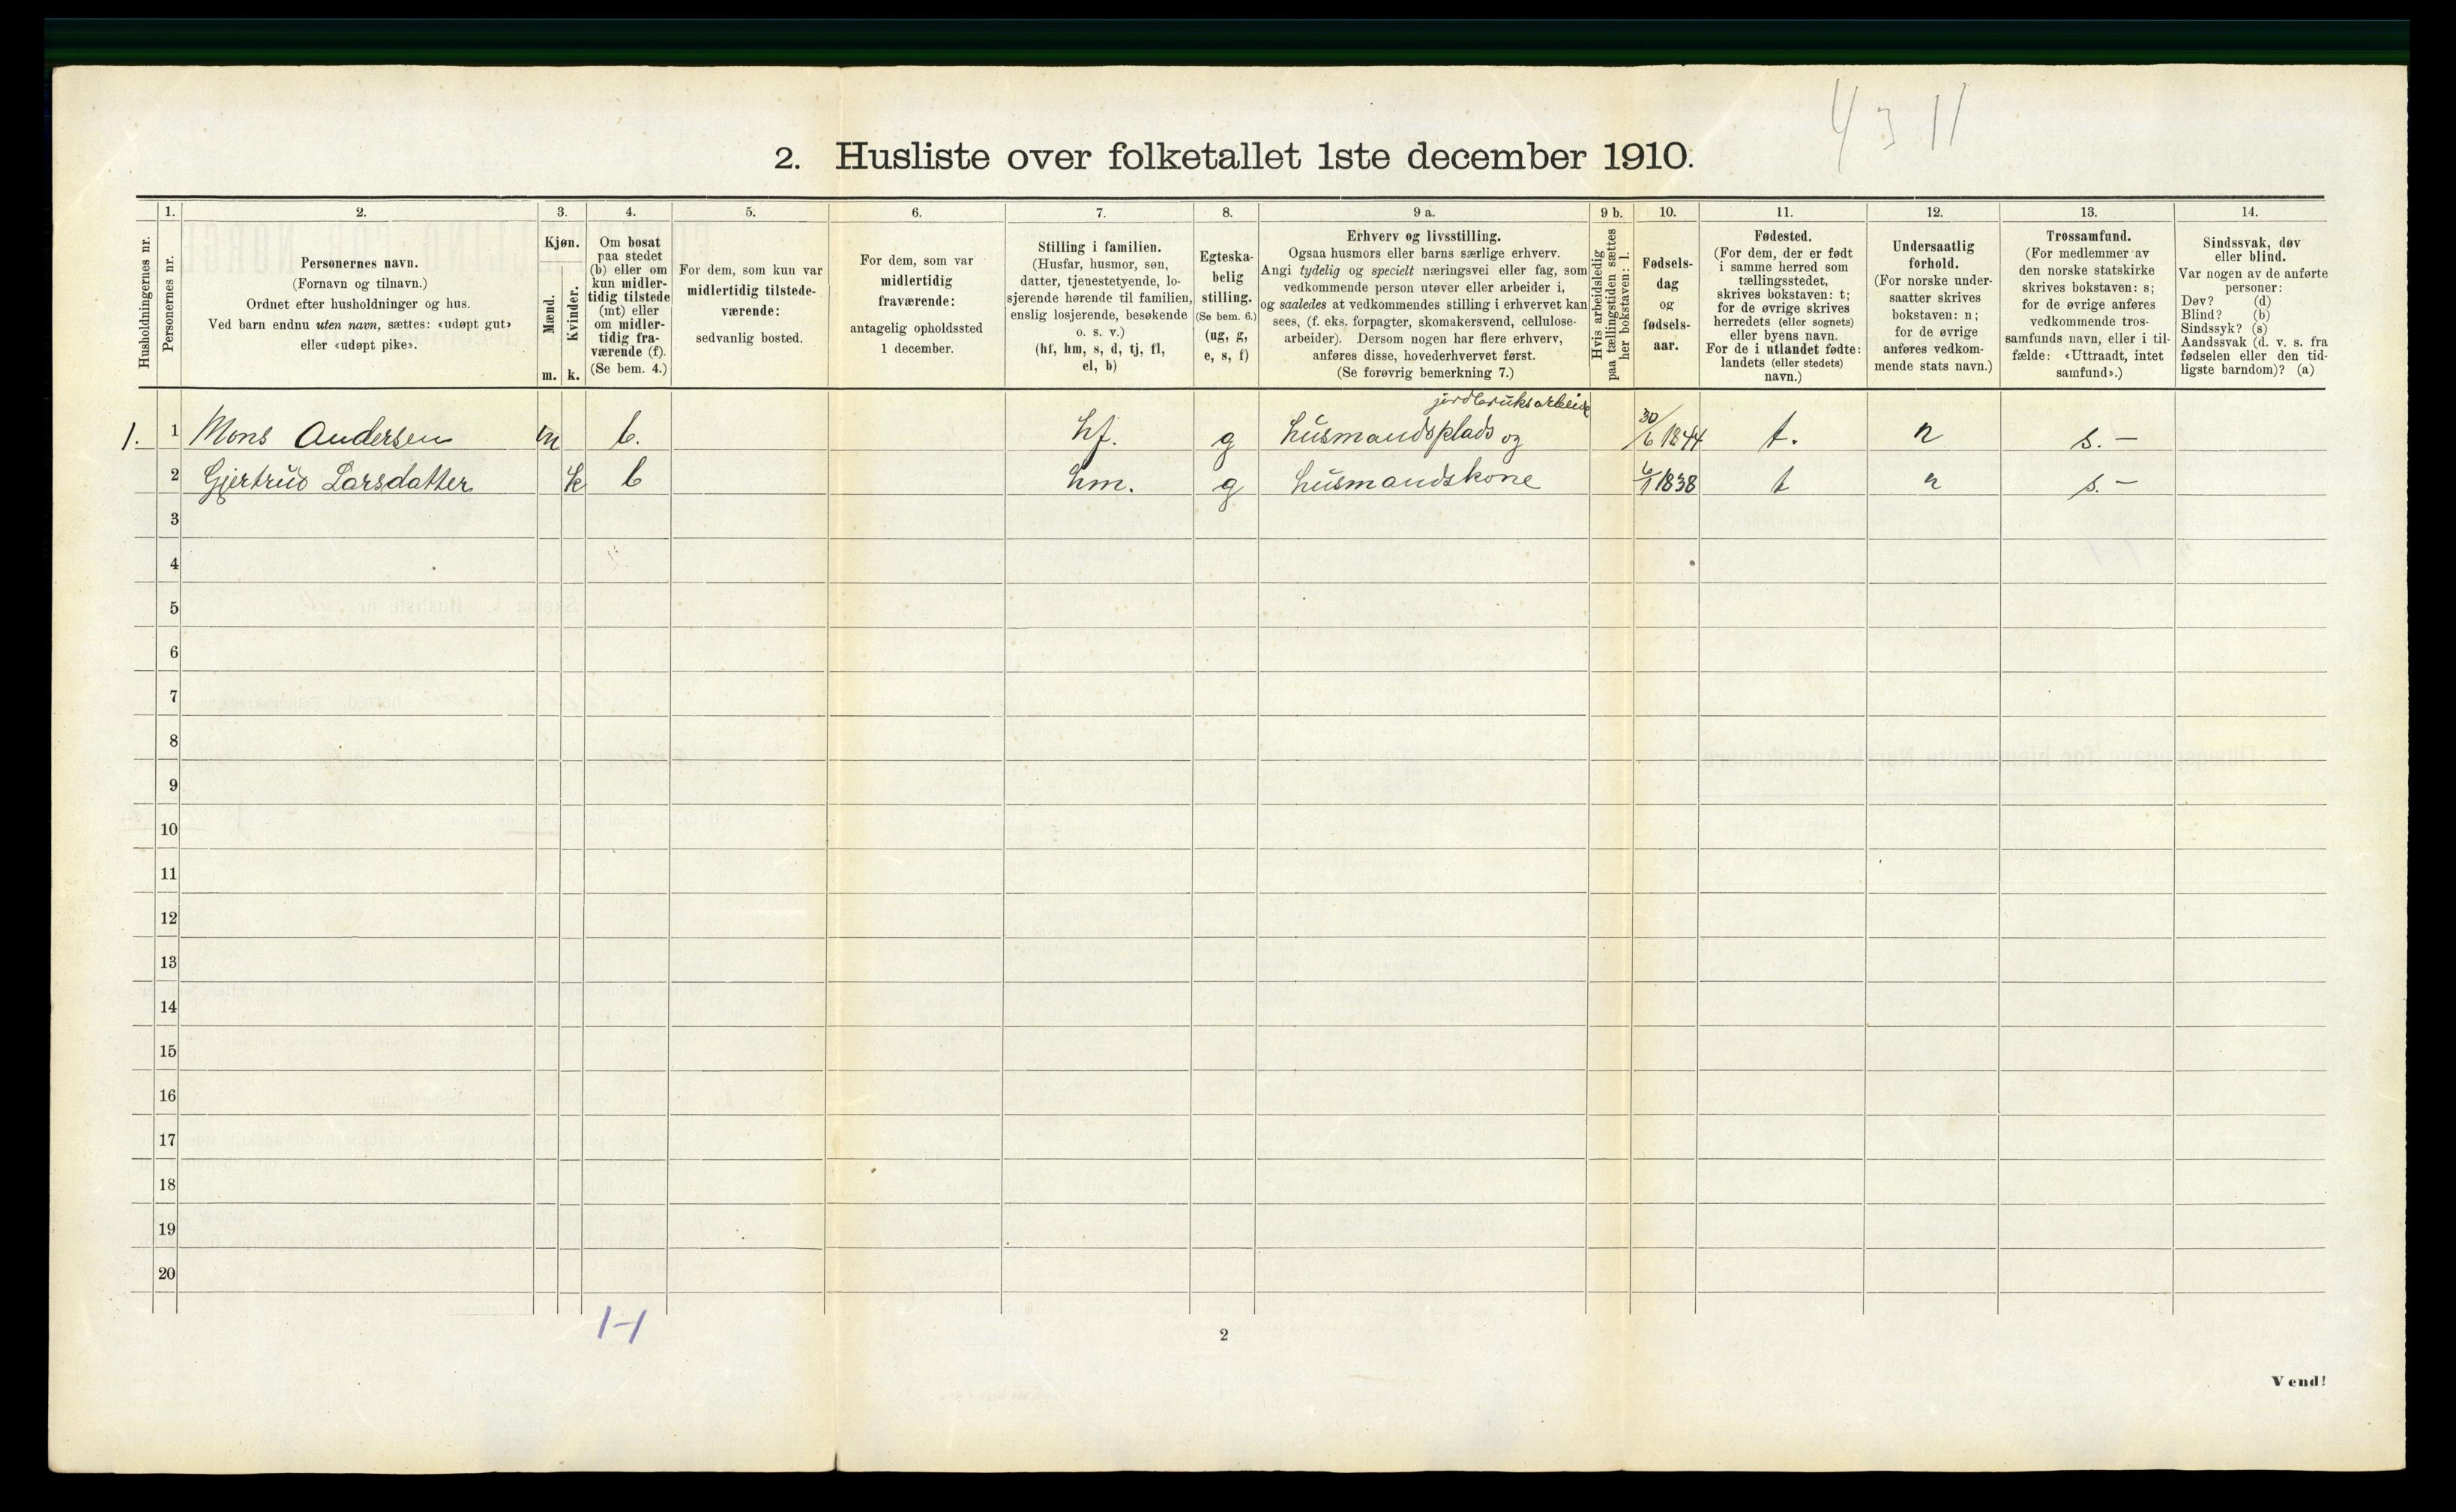 4 3 11
2. Husliste over folketallet 1ste december 1910.
Husholdningernes nr.
1.
Personernes nr.
2.
Personernes navn.
(Fornavn og tilnavn.)
Ordnet efter husholdninger og hus.
Ved barn endnu uten navn, sættes: «udøpt gut»
eller «udøpt pike».
3.
Kjøn.
Mænd.
Kvinder.
m.
k.
4.
Om bosat
paa stedet
(b) eller om
kun midler-
tidig tilstede
(mt) eller
om midler-
tidig fra-
værende (f).
(Se bem. 4.)
5.
For dem, som kun var
midlertidig tilstede-
værende:
sedvanlig bosted.
6.
For dem, som var
midlertidig
fraværende:
antagelig opholdssted
1 december.
7.
Stilling i familien.
(Husfar, husmor, søn,
datter, tjenestetyende, lo-
sjerende hørende til familien,
enslig losjerende, besøkende
o. s. v.)
(hf, hm, s, d, tj, fl,
el, b)
8.
Egteska-
belig
stilling.
(Se bem. 6.)
(ug, g,
e, s, f)
9 a.
Erhverv og livsstilling.
Ogsaa husmors eller barns særlige erhverv.
Angi tydelig og specielt næringsvei eller fag, som
vedkommende person utøver eller arbeider i,
og saaledes at vedkommendes stilling i erhvervet kan
sees, (f. eks. forpagter, skomakersvend, cellulose-
arbeider). Dersom nogen har flere erhverv,
anføres disse, hovederhvervet først.
(Se forøvrig bemerkning 7.)
9 b.
Hvis arbeidsledig
paa tællingstiden sættes
her bokstaven: l.
10.
Fødsels-
dag
og
fødsels-
aar.
11.
Fødested.
(For dem, der er født
i samme herred som
tællingsstedet,
skrives bokstaven: t;
for de øvrige skrives
herredets (eller sognets)
eller byens navn.
For de i utlandet fødte:
landets (eller stedets)
navn.)
12.
Undersaatlig
forhold.
(For norske under-
saatter skrives
bokstaven: n;
for de øvrige
anføres vedkom-
mende stats navn.)
13.
Trossamfund.
(For medlemmer av
den norske statskirke
skrives bokstaven: s;
for de øvrige anføres
vedkommende tros-
samfunds navn, eller i til-
fælde: «Uttraadt, intet
samfund».)
14.
Sindssvak, døv
eller blind.
Var nogen av de anførte
personer:
Døv? (d)
Blind? (b)
Sindssyk? (s)
Aandssvak (d. v. s. fra
fødselen eller den tid-
ligste barndom)? (a)
jordbruksarbeide
1. 1 Mons Andersen m b. hf. g husmandsplads og 30/6 1844 t. n s. –
2 Gjertrud Larsdatter k b hm. g husmandskone 6/1 1838 t n s. –
3
4
5
6
7
8
9
10
11
12
13
14
15
16
17
18
19
20
1-1
2
Vend!